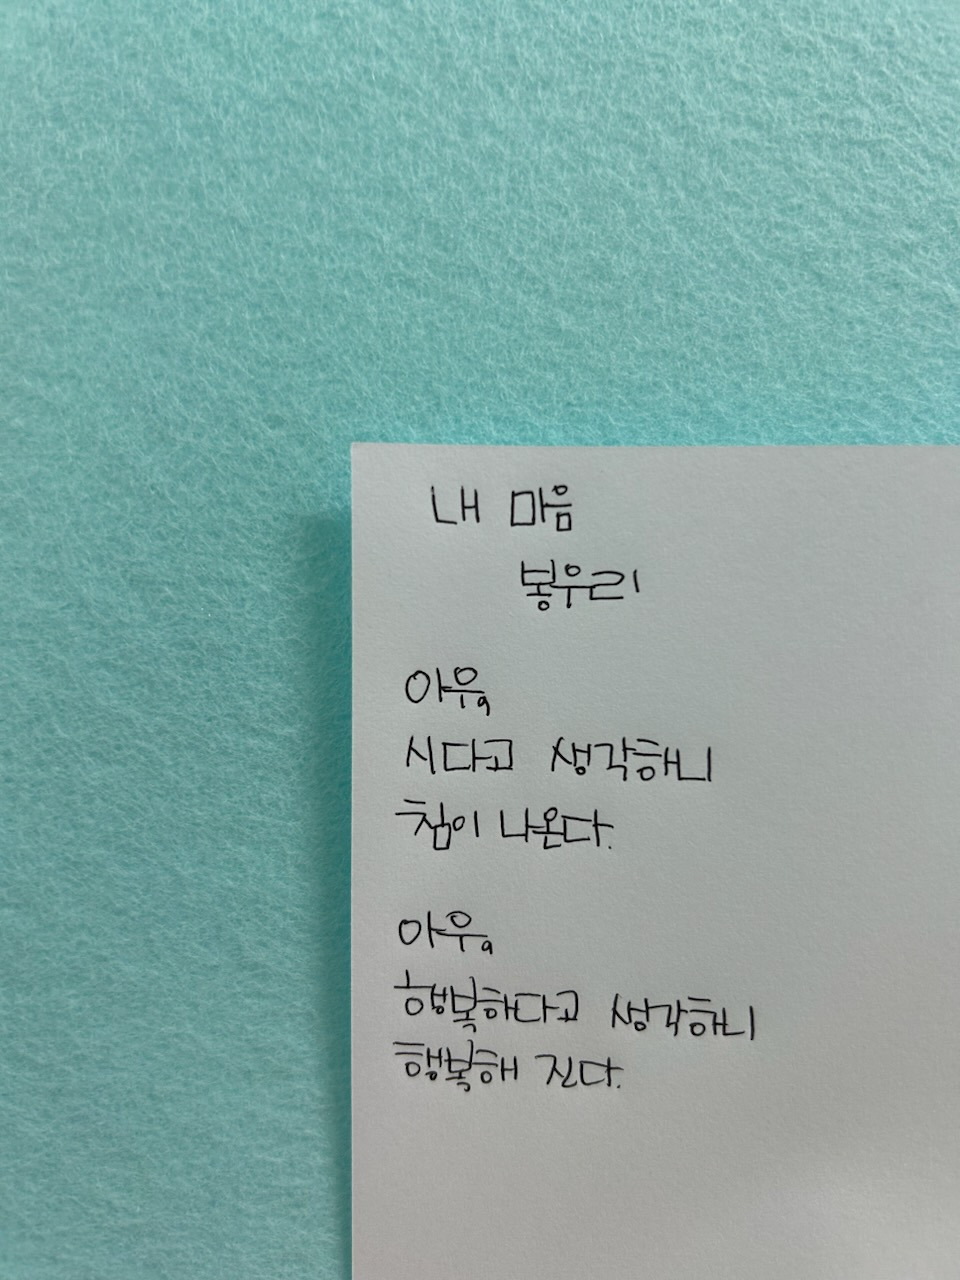 내 마음
봉우리
아우,
시다고 생각하니
침이 나온다.
아우,
행복하다고 생각하니
행복해 진다.